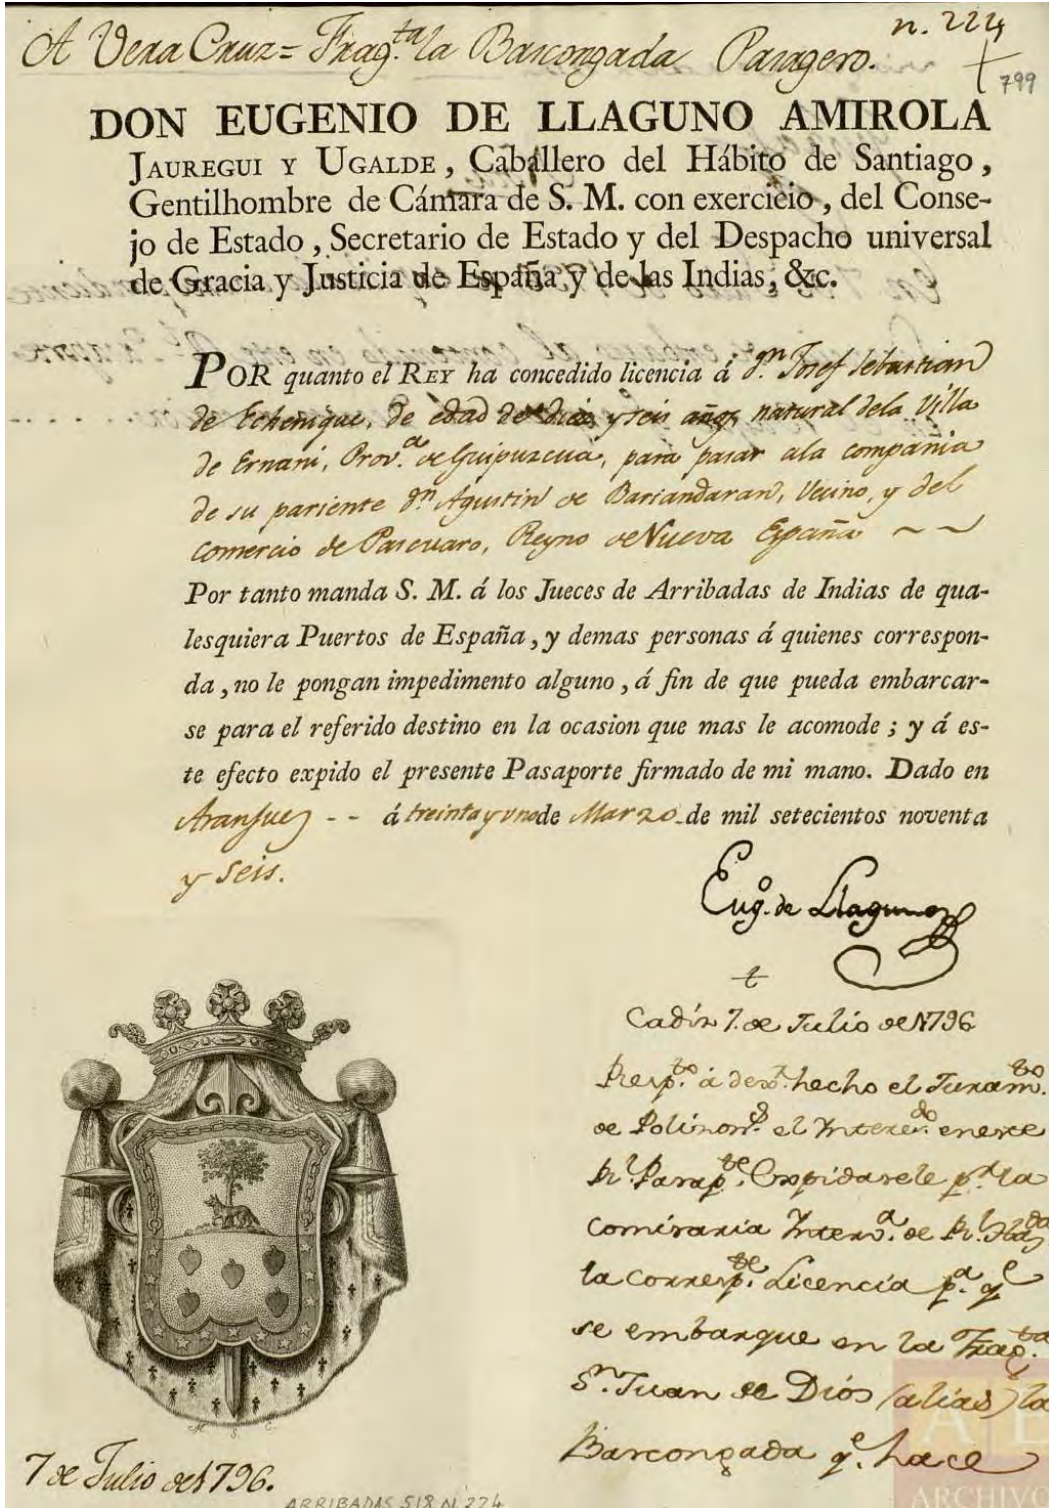 n. 224
A Vera Cruz = Frag.ta la Bascongada Pasagero.
799
DON EUGENIO DE LLAGUNO AMIROLA
JAUREGUI Y UGALDE, Caballero del Hábito de Santiago,
Gentilhombre de Cámara de S. M. con exercicio, del Conse-
jo de Estado, Secretario de Estado y del Despacho universal
de Gracia y Justicia de España y de las Indias, &c.
POR quanto el REY ha concedido licencia á d.n Josef Sebastian
de Echenique, de edad de diez y seis años, natural de la Villa
de Ernani, Prov.a de Guipuzcua, para pasar ala compañia
de su pariente d.n Agustin de Bariandaran, Vecino, y del
comercio de Pascuaro, Reyno de Nueva España
Por tanto manda S. M. á los Jueces de Arribadas de Indias de qua-
lesquiera Puertos de España, y demas personas á quienes correspon-
da, no le pongan impedimento alguno, á fin de que pueda embarcar-
se para el referido destino en la ocasion que mas le acomode; y á es-
te efecto expido el presente Pasaporte firmado de mi mano. Dado en
Aranjuez -- á treinta y uno de Marzo de mil setecientos noventa
y seis.
Eug.o de Llaguno
Cadiz 7. de Julio de 1796
Resp.to á hecho el Juram.to
de el Interes.do en este
R.l Expidasele p.r la
Comisaria Interv.a de R.l
la corresp.te Licencia p.a q.e
se embarque en la Frag.ta
S.n Juan de Dios (alias) la
Barcongada q.e hace
M S C
7 de Julio de 1796.
ARRIBADAS 518 N. 224
AE
ARCHIVO